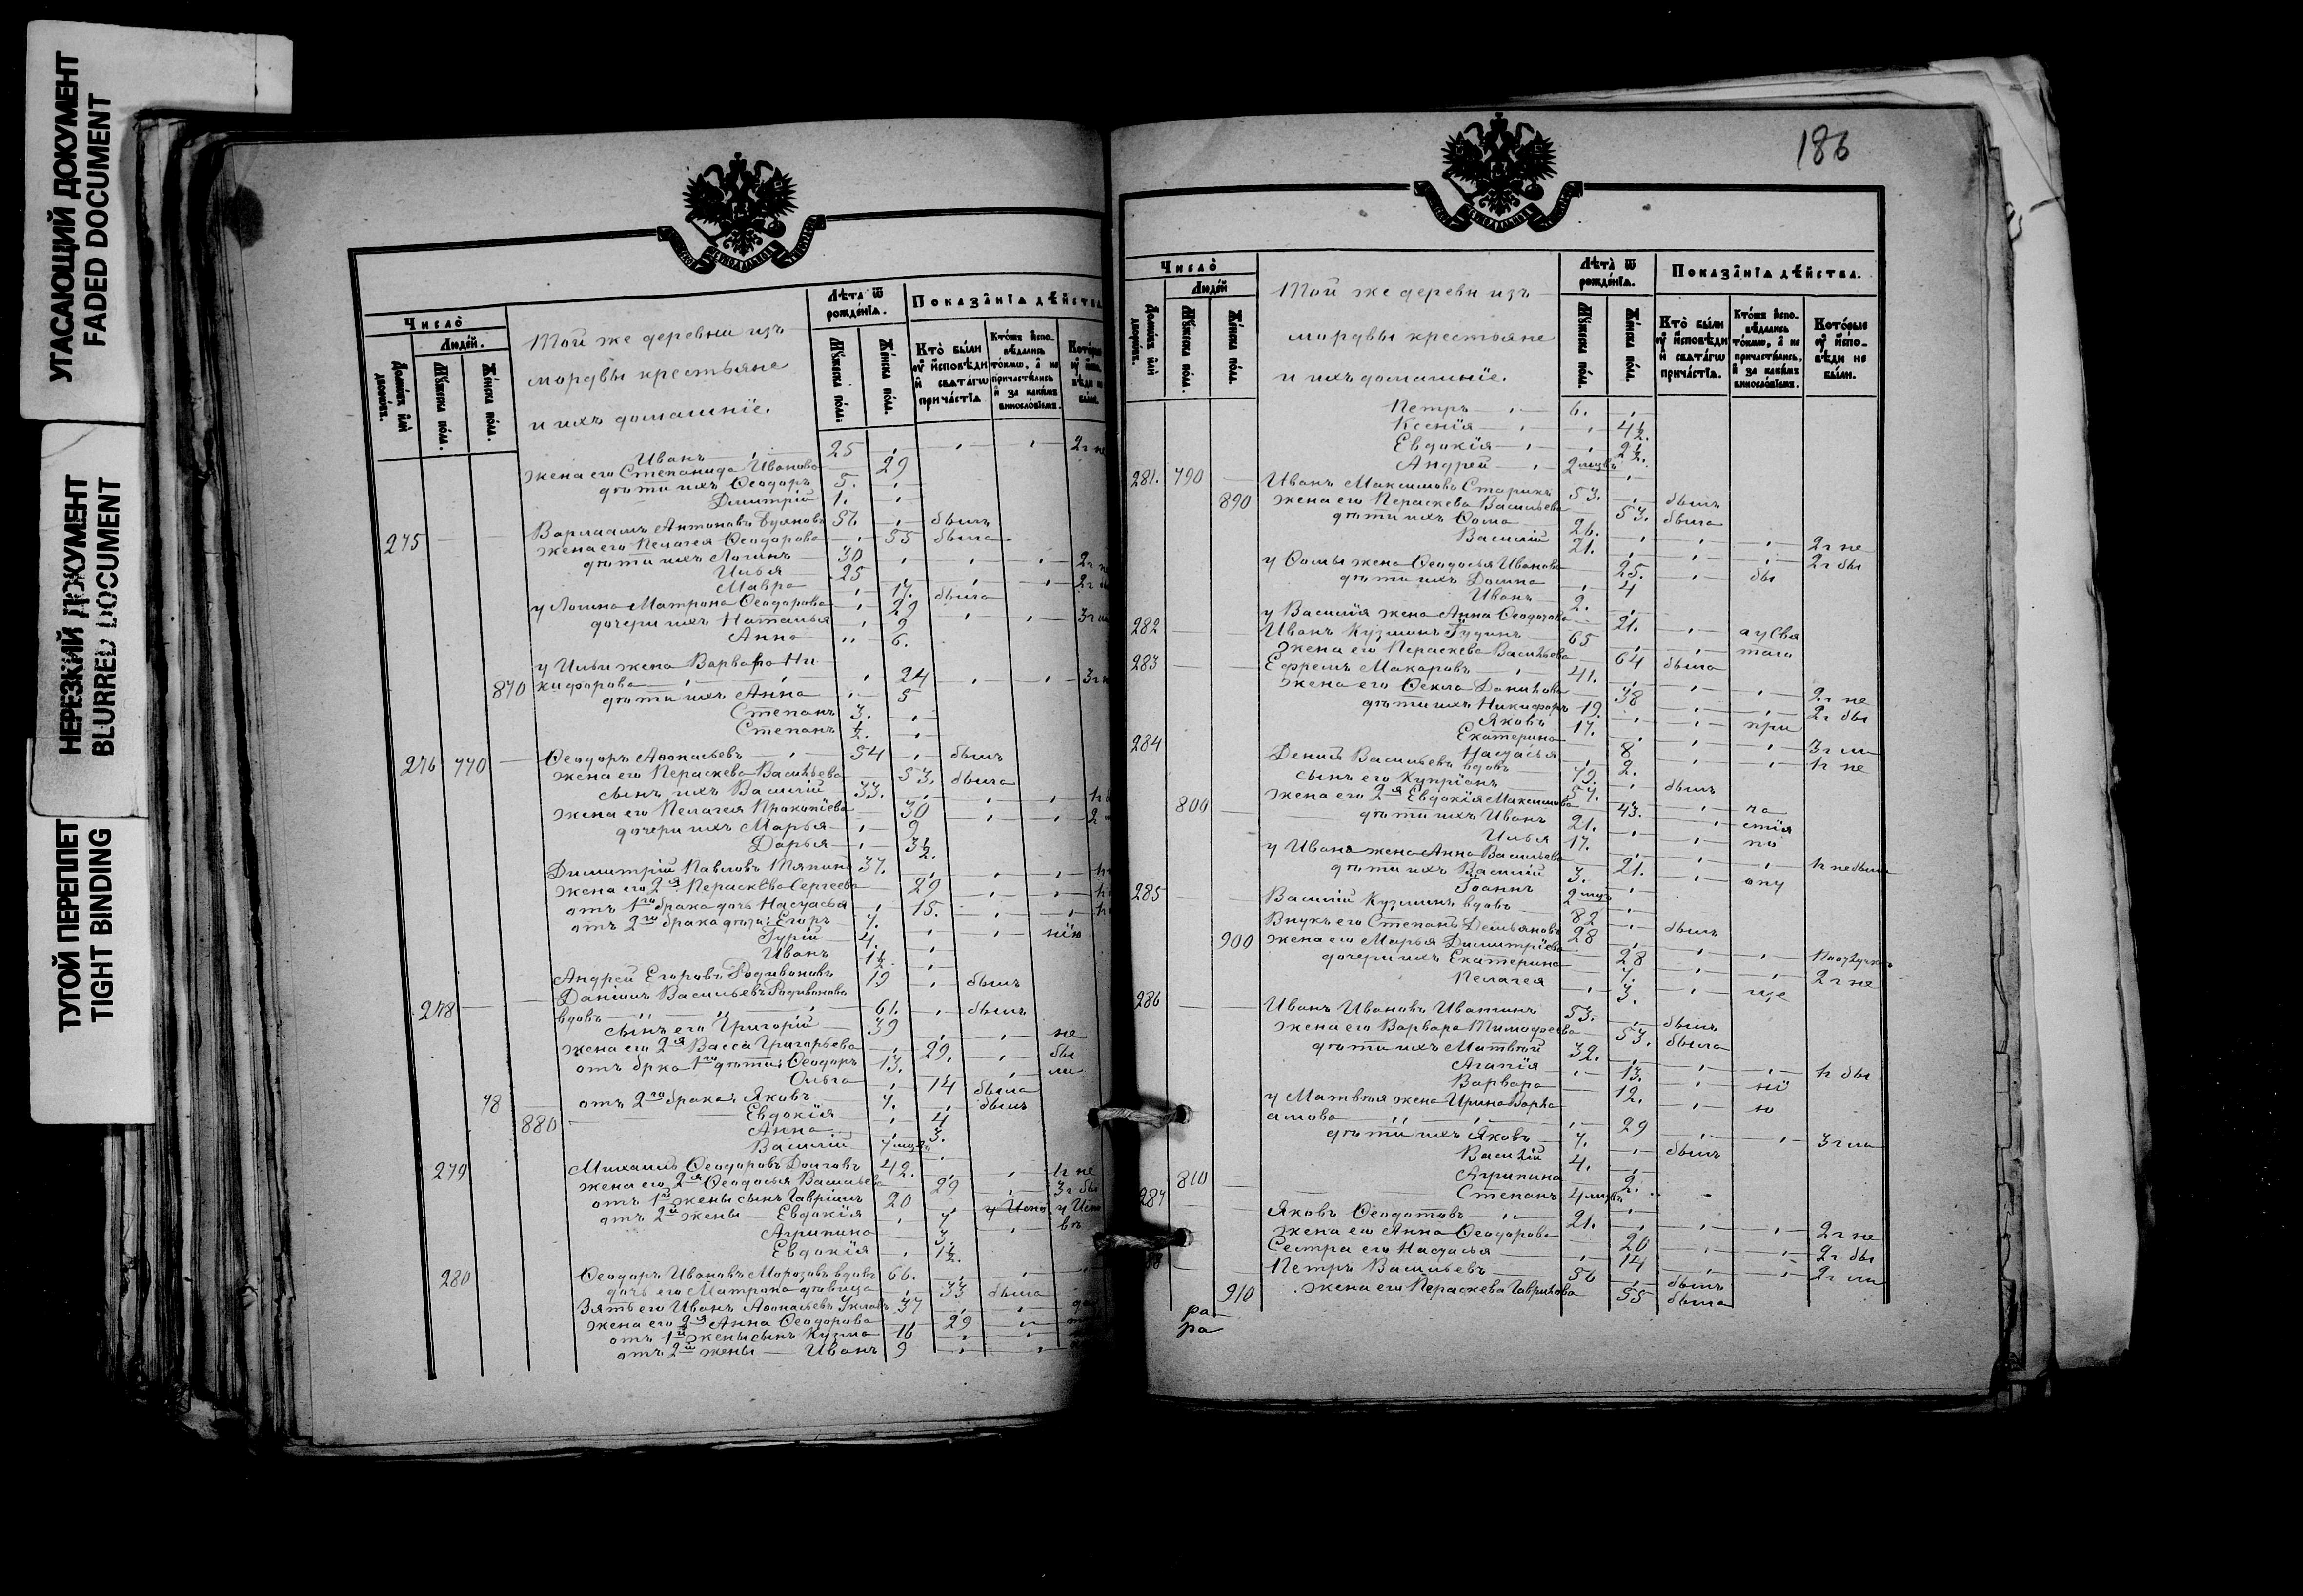 УГАСАЮЩИЙ ДОКУМЕНТ
FADED DOCUMENT
НЕРЕЗКИЙ ДОКУМЕНТ
BLURRED DOCUMENT
ТУГОЙ ПЕРЕПЛЕТ
TIGHT BINDING
Число̀
Людей.
Домѡвъ или дворовъ.
Мꙋжеска полꙋ.
Женска полꙋ.
Той же деревни изъ
мордвы крестьяне
и ихъ домашніе.
Лѣта ѿ рожденія.
Мꙋжеска полꙋ.
Женска полꙋ.
Показанія дѣйства
Кто были ꙋ исповѣди и свѧтагѡ причастія
Ктожъ исповѣдались токмѡ, а не причастились и за какимъ винословіемъ.
Иванъ 25 2 г не
жена его Степанида Иванова 29
дѣти ихъ Ѳеодоръ 5.
Димитрій 1.
275 Варлаамъ Антоновъ 57. былъ
жена его Пелагея Ѳеодорова 55 была
дѣти ихъ Логинъ 30
Илья 25
Мавра 17. была
у Логина Матрона Ѳеодорова 29
дочери ихъ Наталья 9
Анна 6.
у Ильи жена Варвара Ни-
870 кифорова 24
дѣти ихъ Анна 5
Степанъ 3.
Степанъ ½.
276 770 Ѳеодоръ Аѳонасьевъ 54 былъ
жена его Параскева Васильева 53. была
сынъ ихъ Василій 33.
жена его Пелагея Прокопіева 30
дочери ихъ Марья 9
Дарья 3½.
Димитрій Павловъ Тяпинъ 37.
жена его 2я Параскева Сергеева 29
отъ 1го брака дочь Настасья 15.
отъ 2го брака дѣти: Егоръ 7.
Гурій 4. нію
Иванъ 1½.
Андрей Егоровъ Родивоновъ 19 былъ
278 Даніилъ Васильевъ Родивоновъ
вдовъ 61. былъ
сынъ его Григорій 39 не
жена его 2я Васса Григорьева 29. бы
отъ брка 1го дѣти: Ѳеодоръ 13. ли
Ольга 14 была
78 отъ 2го брака: Яковъ 7. былъ
880 Евдокія
Анна 3.
Василій 7 мцвъ
279 Михаилъ Ѳеодоровъ Долговъ 42. 1 г не
жена его 2я Ѳеодосья Васильева 29 3 г бы
отъ 1й жены сынъ Гавріилъ 20
отъ 2й жены Евдокія 7
Агрипина 3.
Евдокія 1½.
280 Ѳеодоръ Ивановъ Морозовъ вдовъ 66.
дочь его Матрона дѣвица 33 была
Зять его Иванъ Аѳонасьевъ 37
жена его 2я Анна Ѳеодорова 29
отъ 1й жены сынъ Кузма 16
отъ 2й жены Иванъ 9
186
Число̀
Людей
Домѡвъ или дворовъ.
Мꙋжеска полꙋ.
Женска полꙋ.
Той же деревн изъ
мордвы крестьяне
и ихъ домашніе.
Лѣта ѿ рожденія.
Мꙋжеска полꙋ.
Женска полꙋ.
Показанія дѣйства.
Кто были ꙋ исповѣди и свѧтагѡ причастія.
Ктожъ исповѣдались токмѡ, а не причастились, и за какимъ винословіемъ.
Которые ꙋ исповѣди не были.
Петръ 6.
Ксенія 4½
Евдокія 2½.
Андрей 2 мцвъ
281. 790 Иванъ Максимовъ Старикъ 53. былъ
890 жена его Параскева Васильева 53. была
дѣти ихъ Ѳома 26. 2 г не
Василій 21. 2 г бы
у Ѳомы жена Ѳеодосья Иванова 25. бы
дѣти ихъ Домна 4
Иванъ 2.
у Василія жена Анна Ѳеодорова 21. а у Свя
282 Иванъ Кузминъ Гудинъ 65 таго
жена его Параскева Васильева 64 была
283 Ефремъ Макаровъ 41. 2 г не
жена его Ѳекла Данилова 38 2 г бы
дѣти ихъ Никифоръ 19. при
Яковъ 17. 3 г ли
Екатерина 8 1 г не
Настасья 2.
284 Денисъ Васильевъ вдовъ 79. былъ
сынъ его Купріанъ 57. ча
800 жена его 2я Евдокія Максимова 43. стія
дѣти ихъ Иванъ 21. по
Илья 17. 1 г не былъ
у Ивана жена Анна Васильева 21. опу
дѣти ихъ Василій 3.
Іоаннъ 2 мцвъ
285 Василій Кузминъ вдовъ 82 былъ
Внукъ его Степанъ Демьяновъ 28
900 жена его Марья Димитріева 28 2 г не
дочери ихъ Екатерина 7. ще
Пелагея 3.
286 Иванъ Ивановъ Иватинъ 53. былъ
жена его Варвара Тимофеева 53. была
дѣти ихъ Матвѣй 32. 1 г бы
Агапія 13. ні
Варвара 12. ю
у Матвѣя жена Ирина Варла-
амова 29 3 г ли
дѣти ихъ Яковъ 7. былъ
Василій 4.
810 Агрипина 2.
Степанъ 4 мцвъ
287 Яковъ Ѳеодотовъ 21. 2 г не
жена его Анна Ѳеодорова 20 2 г бы
Сестра его Настасья 14 2 г ли
88 Петръ Васильевъ 56 былъ
910 жена его Параскева Гаврилова 55 была
ра
ра